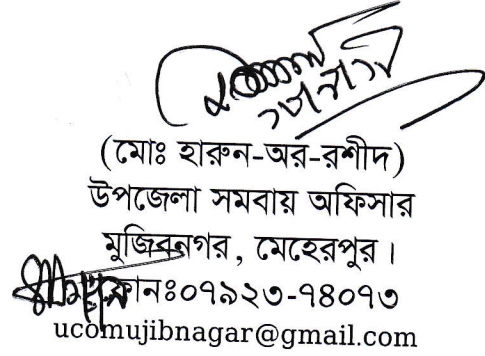 (মোঃ হারুন-অর-রশীদ)
উপজেলা সমবায় অফিসার
মুজিবনগর, মেহেরপুর।
ফোনঃ০৭৯২৩-৭৪০৭৩
ucomujibnagar@gmail.com